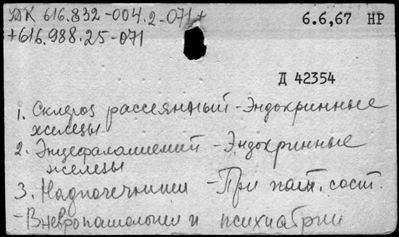 УДК 616.832-004.2-071+
+616.988.25-071
6.6,67 НР
Д 42354
1. Склероз рассеянный - Эндокринные
железы
2. Энцефаломиелит - Эндокринные
железы
3. Надпочечники - При пат. сост.
- В невропатологии и психиатрии